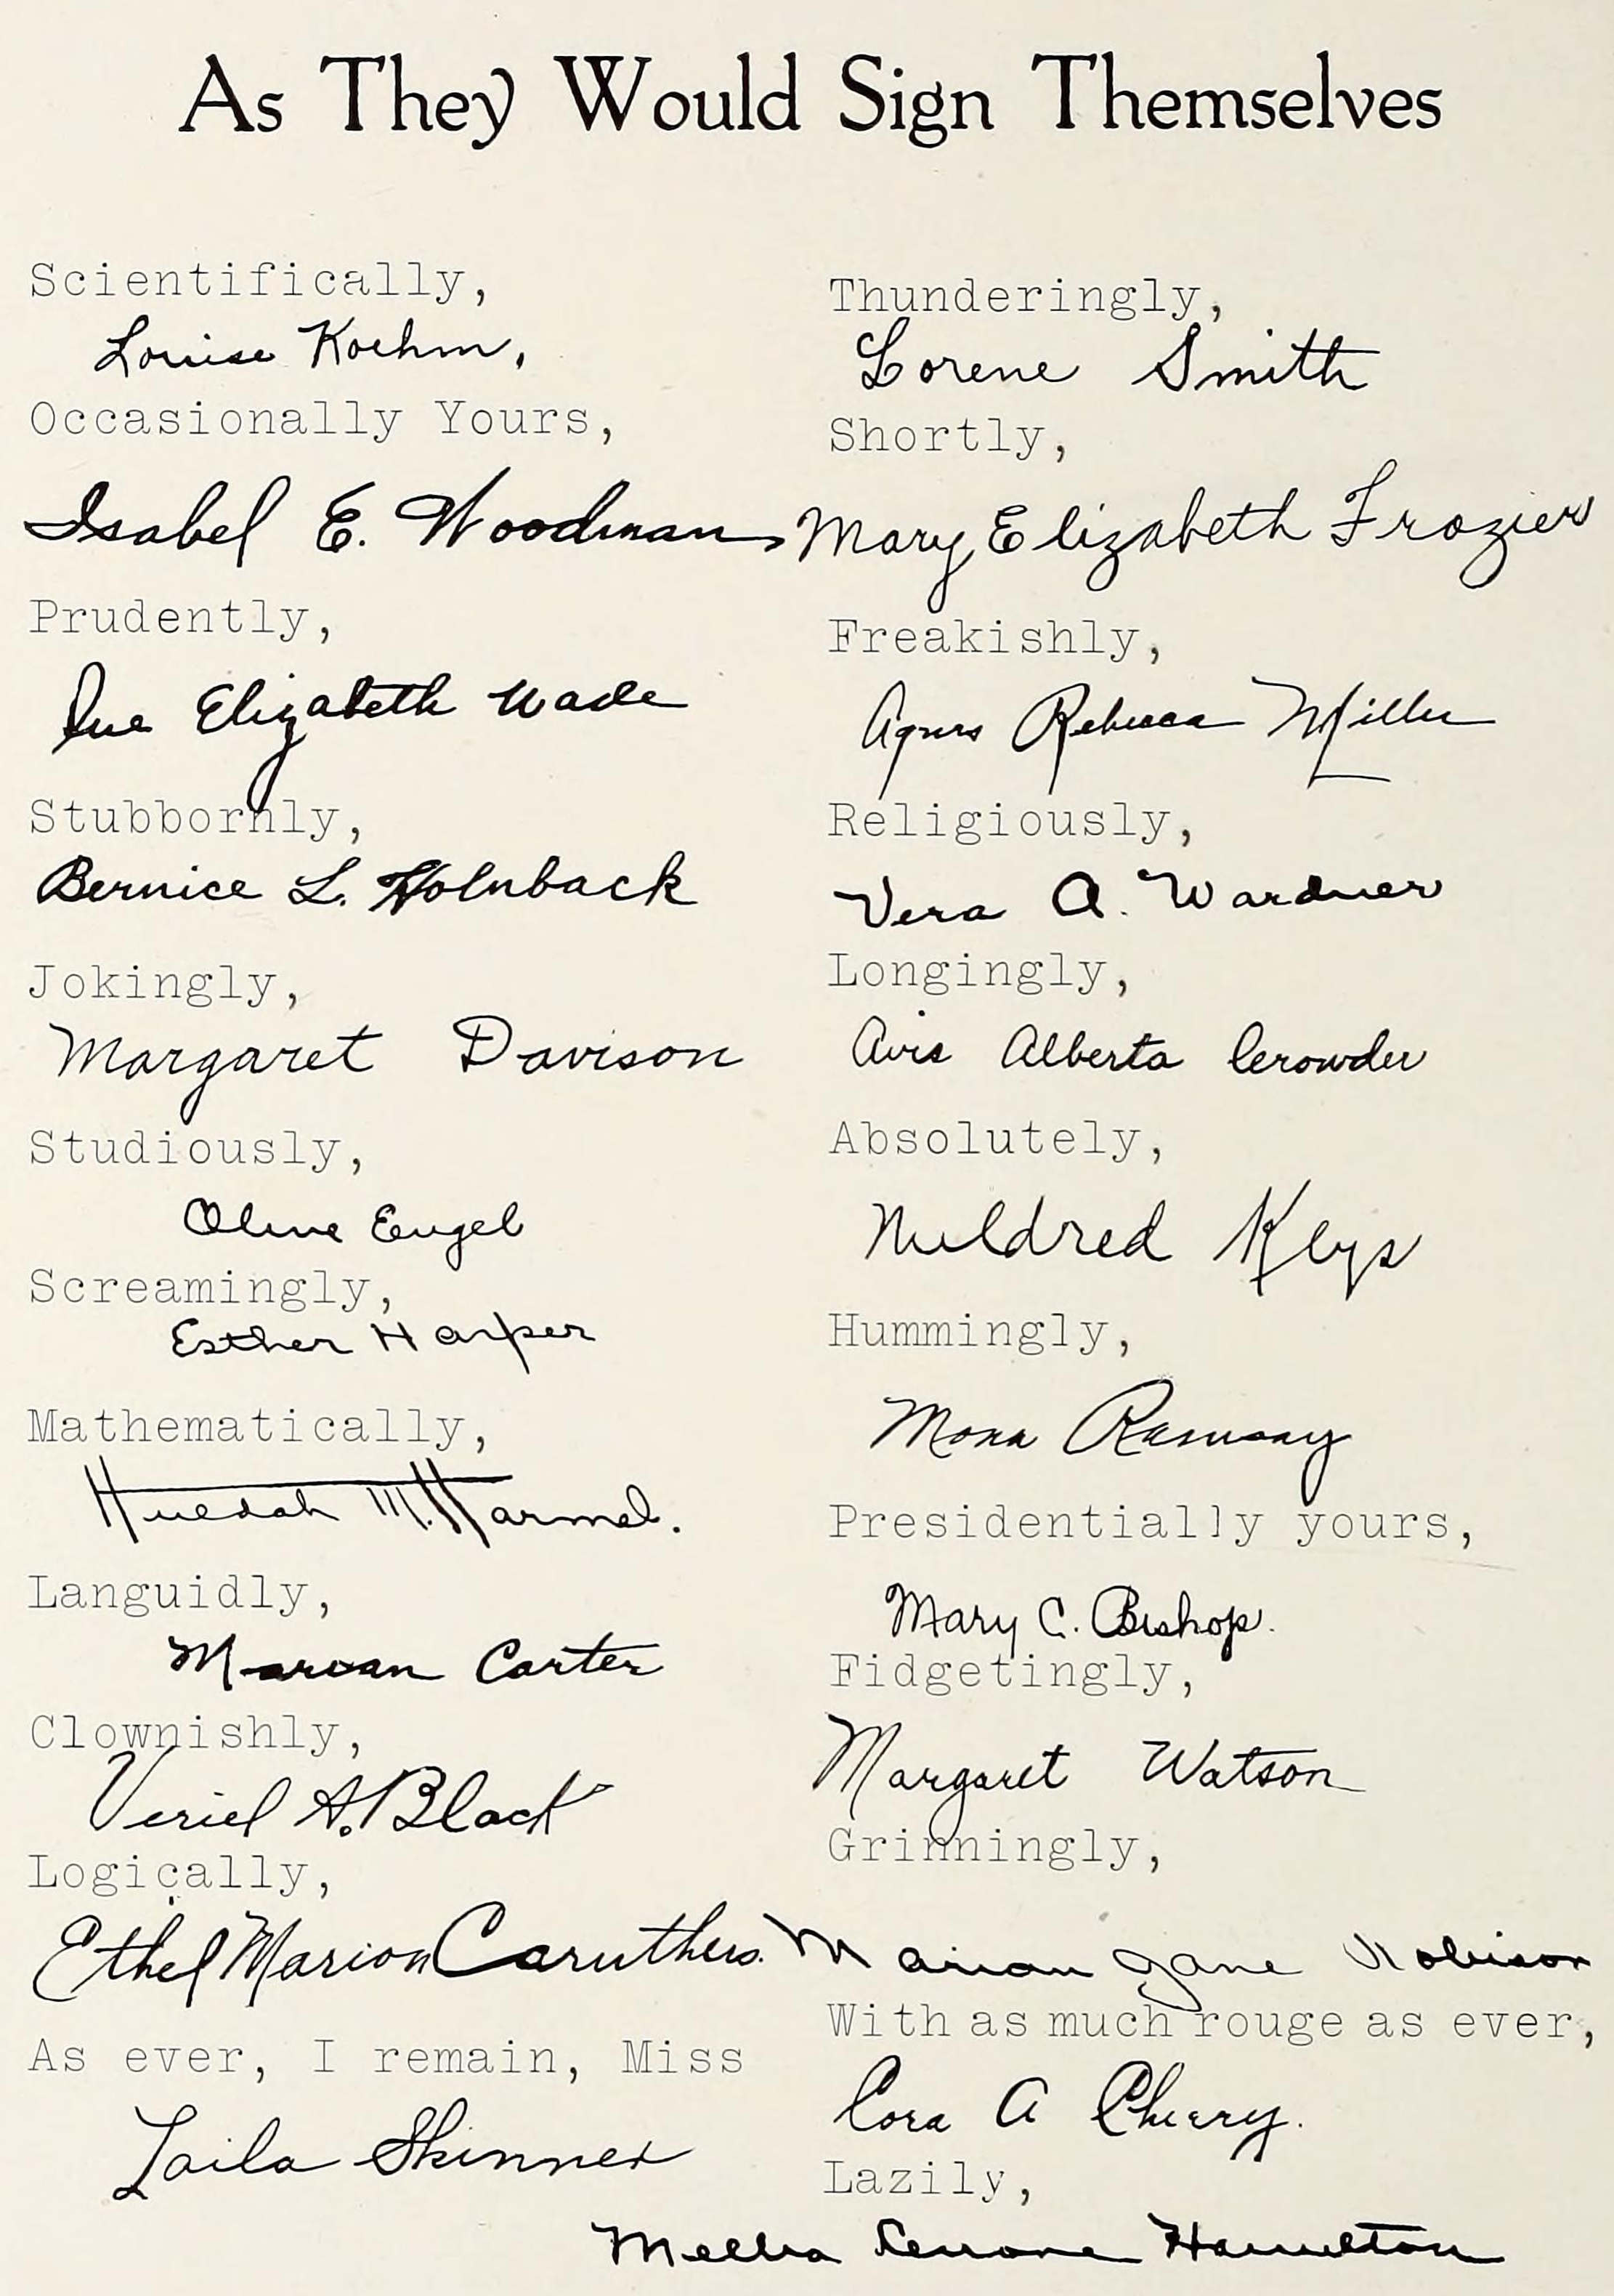 As They Would Sign Themselves
Scientifically,
Louise Koehm,
Occasionally Yours,
Isabel E. Woodman,
Prudently,
Sue Elizabeth Wade
Stubbornly,
Bernice L. Holnback
Jokingly,
Margaret Davison
Studiously,
Olive Engel
Screamingly,
Esther Harper
Mathematically,
Huldah M. Harmel.
Languidly,
Marian Carter
Clownishly,
Veriel A. Black
Logically,
Ethel Marion Caruthers.
As ever, I remain, Miss
Laila Skinner
Thunderingly,
Lorene Smith
Shortly,
Mary Elizabeth Frozier
Freakishly,
Agnes Rebecca Miller
Religiously,
Vera A. Wardner
Longingly,
Avis Alberta Crowder
Absolutely,
Mildred Keys
Hummingly,
Mona Ramsay
Presidentially yours,
Mary C. Bishop.
Fidgetingly,
Margaret Watson
Grinningly,
Marian Jane Robison
With as much rouge as ever,
Cora A Cherry.
Lazily,
Melba Hamilton